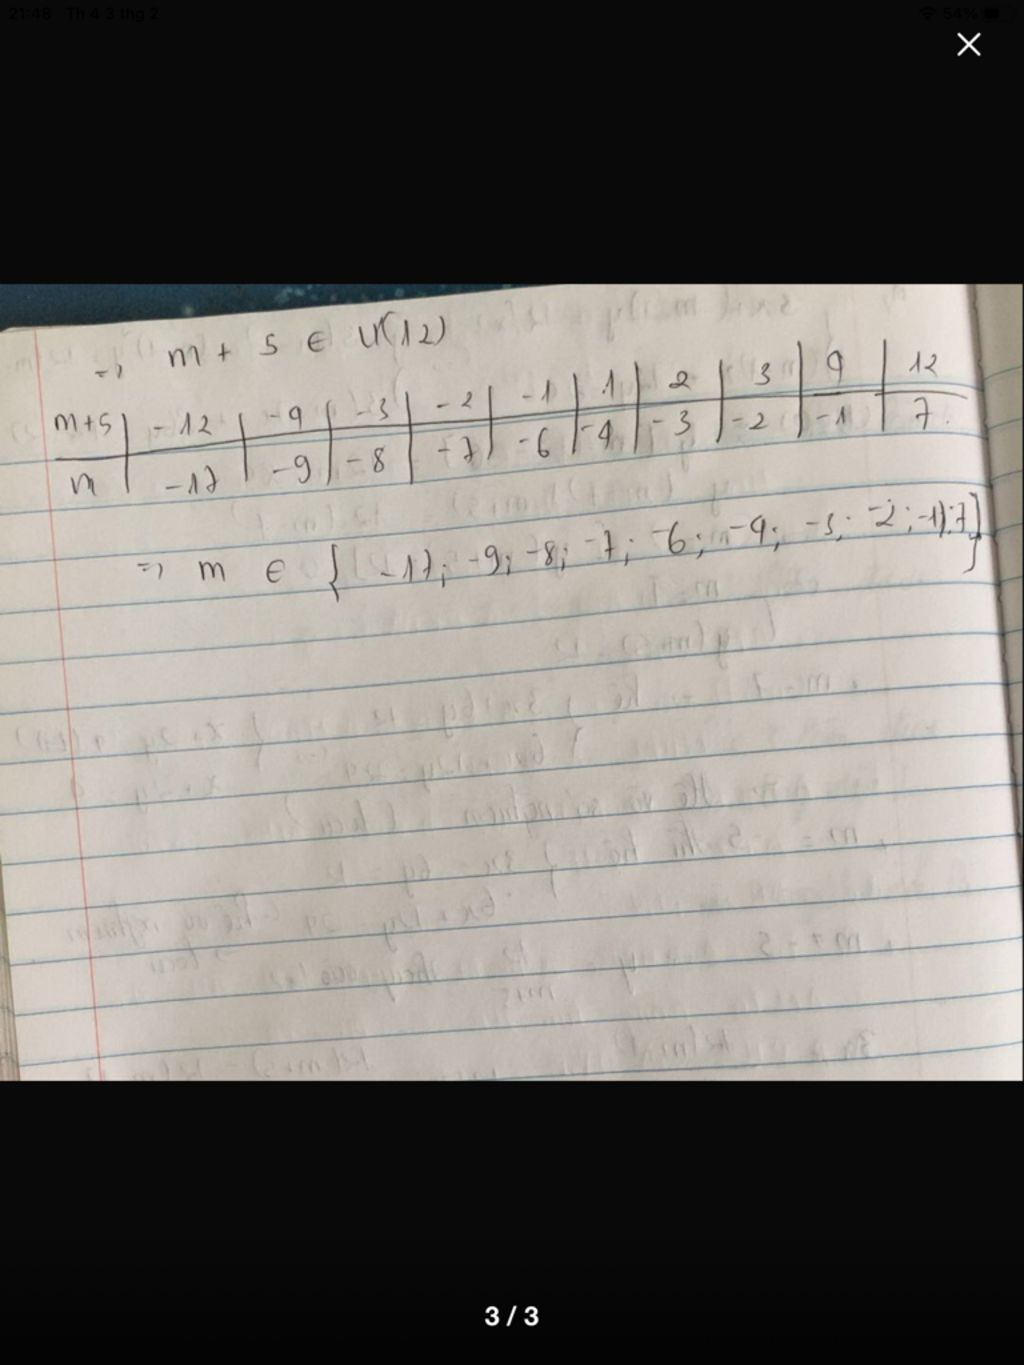 21:48 Th 4 3 thg 2 54%
=> m + 5 ∈ Ư(12)
m+5 | -12 | -4 | -3 | -2 | -1 | 1 | 2 | 3 | 4 | 12
m | -17 | -9 | -8 | -7 | -6 | -4 | -3 | -2 | -1 | 7
=> m ∈ { -17; -9; -8; -7; -6; -4; -3; -2; -1; 7}
3 / 3